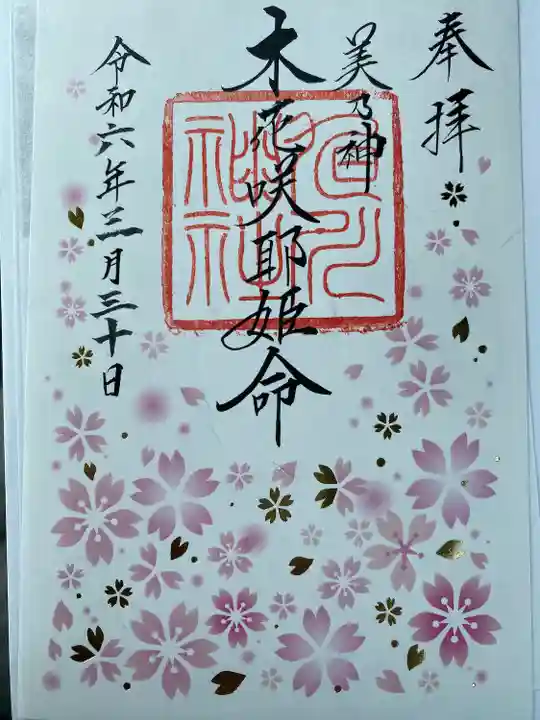 奉拝
美乃神
木花咲耶姫命
令和六年三月三十日